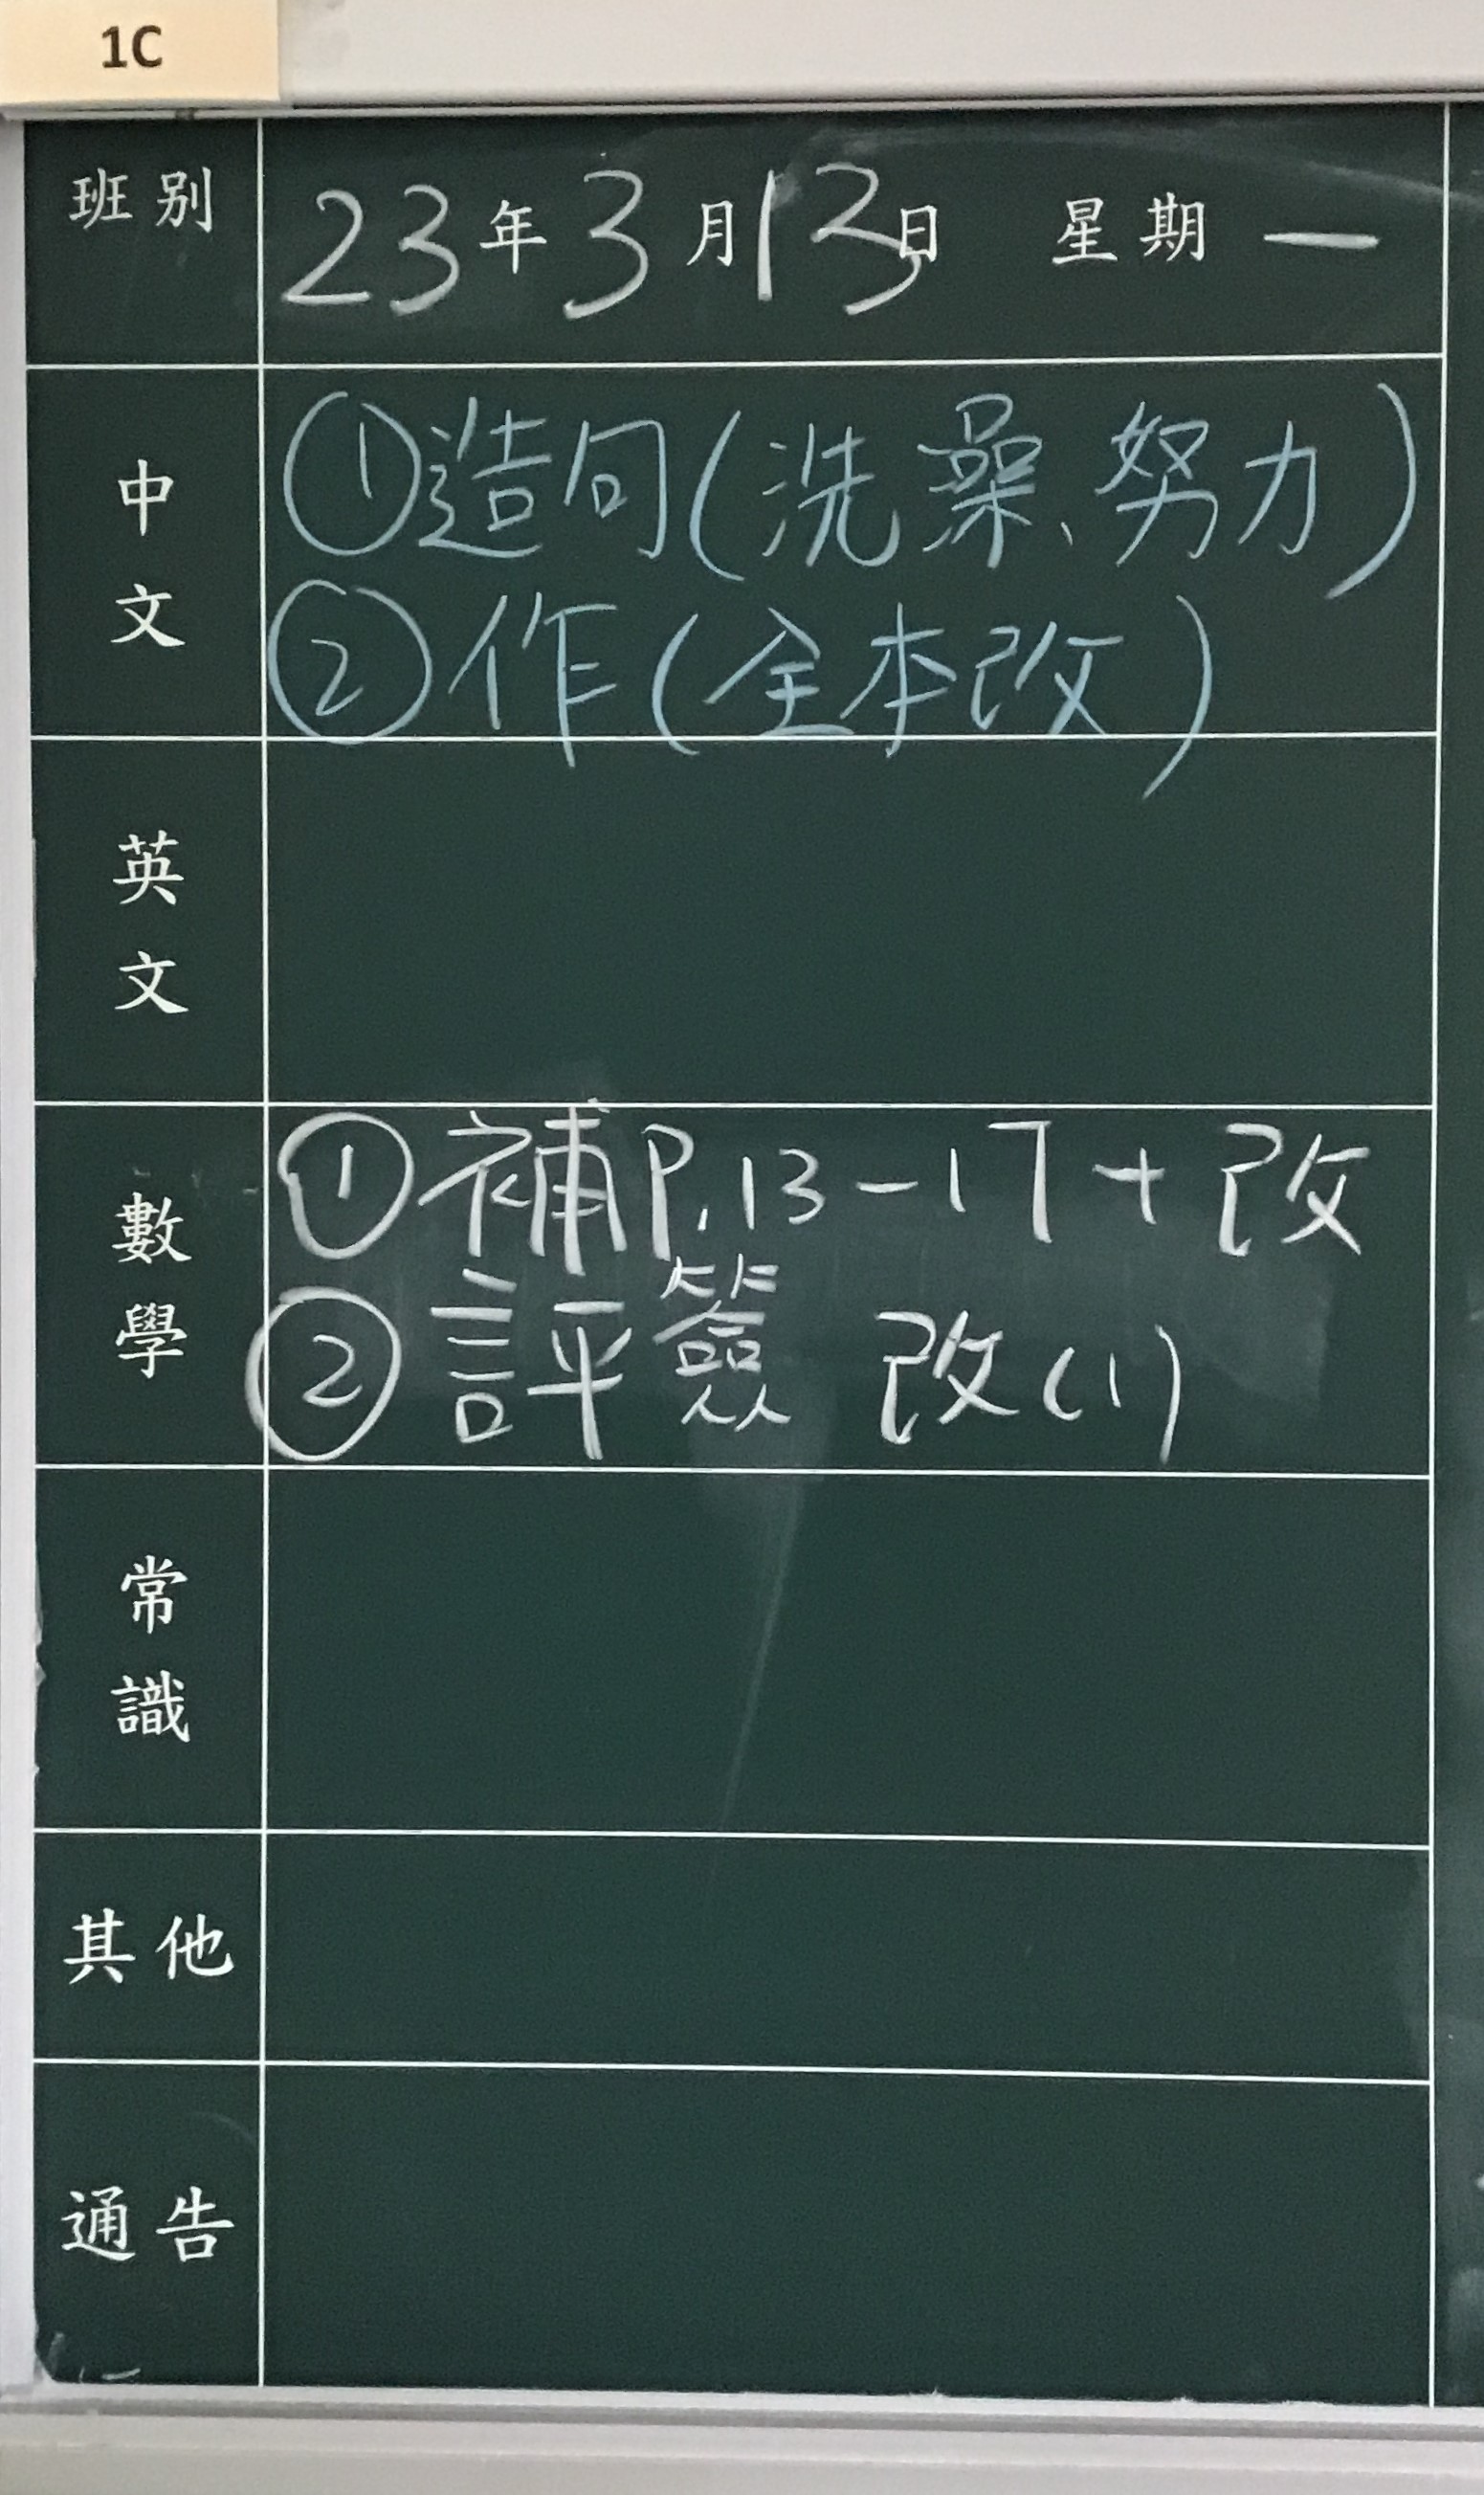 1C
班別 23年3月13日 星期一
中文
①造句(洗澡、努力)
②作(全本改)
英文
數學
①補P.13-17+改
②評簽 改(1)
常識
其他
通告